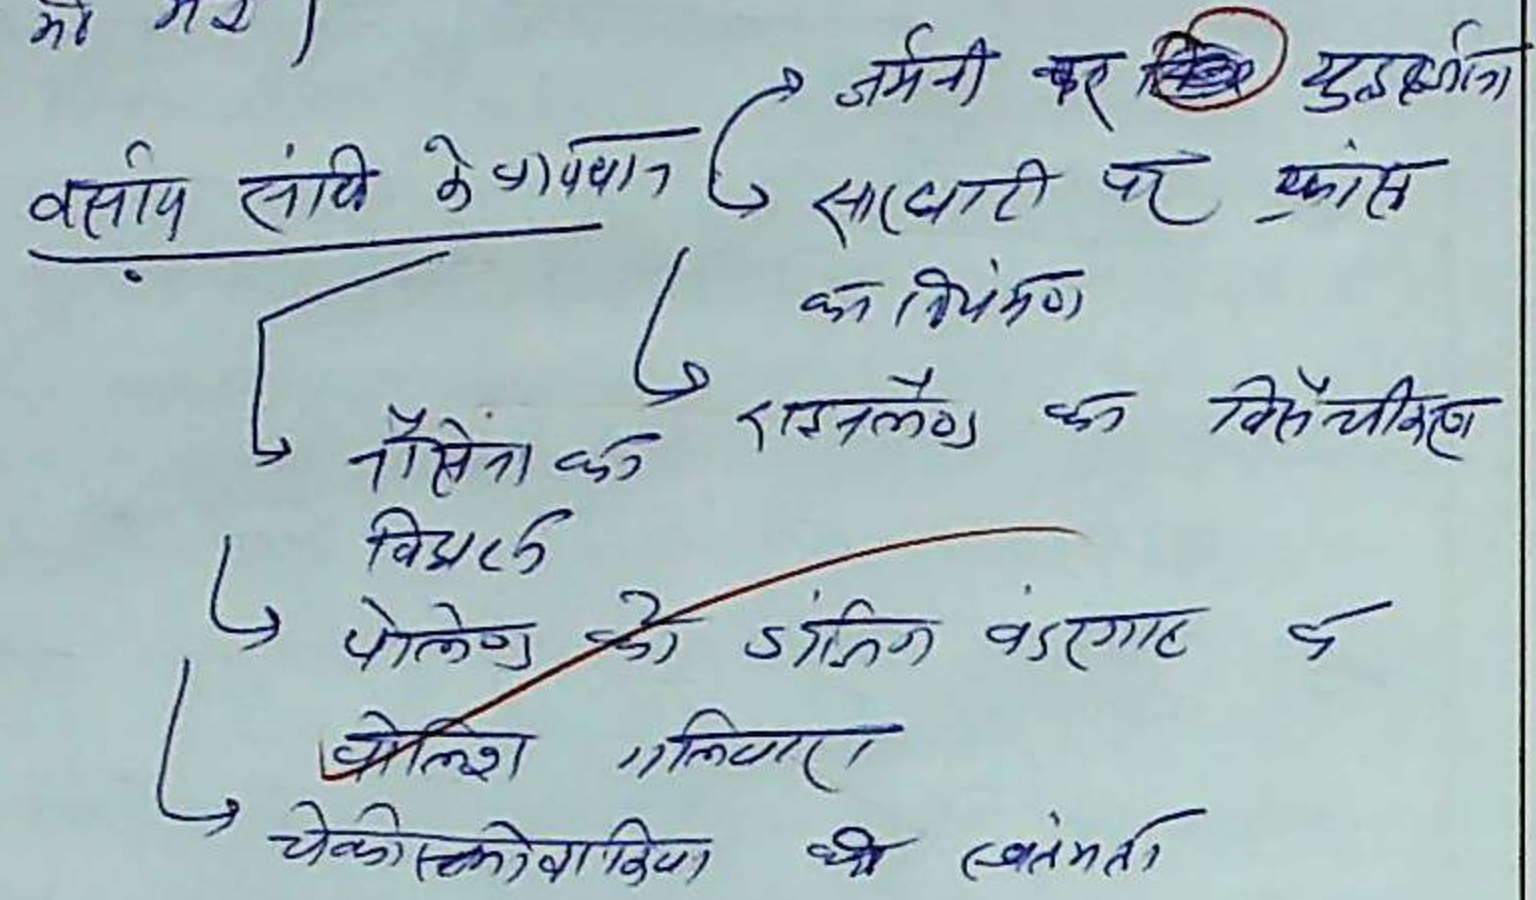 को मदद)
वर्साय संधि के प्रावधान
जर्मनी पर युद्धहर्जाना
सारघाटी पर फ्रांस
का नियंत्रण
राइनलैण्ड का विसैन्यीकरण
नौसेना का
विघटन
पोलेण्ड को डांजिग बंदरगाह व
पोलिश गलियारा
चेकोस्लोवाकिया की स्वतंत्रता